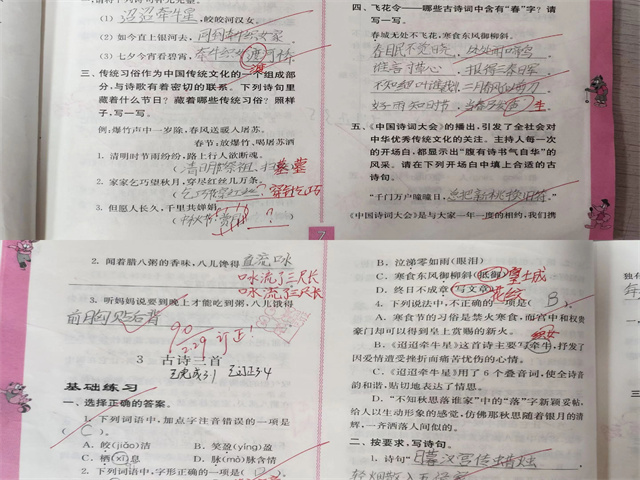 (1) 迢迢牵牛星,皎皎河汉女。
(2) 如今直上银河去,同到牵牛织女家
(3) 七夕今宵看碧霄,牵牛织女渡河桥
三、传统习俗作为中国传统文化的一个组成部
分,与诗歌有着密切的联系。下列诗句里
藏着什么节日?藏着哪些传统习俗?照样
子,写一写。
例:爆竹声中一岁除,春风送暖入屠苏。
春节:放爆竹,喝屠苏酒
1. 清明时节雨纷纷,路上行人欲断魂。
(清明节祭祖,扫墓)
2. 家家乞巧望秋月,穿尽红丝几万条。
穿针乞巧
3. 但愿人长久,千里共婵娟。
(中秋节
四、飞花令——哪些古诗词中含有“春”字?请
写一写。
春城无处不飞花,寒食东风御柳斜。
春眠不觉晓,处处闻啼鸟
报得三春晖
不知细叶谁裁出,二月春风似剪刀
好雨知时节,当春乃发 生
五、《中国诗词大会》的播出,引发了全社会对
中华优秀传统文化的关注。主持人每一次
的开场白,都显示出“腹有诗书气自华”的
风采。请在下列开场白中填上合适的古
诗句。
“千门万户曈曈日,总把新桃换旧符。
《中国诗词大会》是与大家一年一度的相约,我们携
7
2. 闻着腊八粥的香味,八儿馋得直流口水
口水流了三尺长
口水流了三尺长
3. 听妈妈说要到晚上才能吃到粥,八儿饿得
前胸贴后背
90
2.29 订正!
3 古诗三首
基础练习
一、选择正确的答案。
1. 下列词语中,加点字注音错误的一项是
(C)。
A. 皎(jiǎo)洁 B. 笑盈(yíng)盈
C. 栖(xī)息 D. 脉(mò)脉含情
2. 下列词语中,字形正确的一项是(D)。
B. 泣涕零如雨(眼泪)
C. 寒食东风御柳斜(抵御)皇城
D. 终日不成章(写文章)花纹
4. 下列说法中,不正确的一项是(B)。
A. 寒食节的习俗是禁火寒食,而宫中和权贵
豪门却可以得到皇上赏赐的新火。
织女
B. 《迢迢牵牛星》这首诗主要写牵牛,抒发了
因爱情遭受挫折而痛苦忧伤的心情。
C. 《迢迢牵牛星》用了6个叠音词,使全诗音
韵和谐,贴切地表达了情思。
D. “不知秋思落谁家”中的“落”字新颖妥帖,
给人以生动形象的感觉,仿佛那秋思随着银月的清
辉,一齐洒落人间似的。
二、按要求,写诗句。
1. 诗句“日暮汉宫传蜡烛